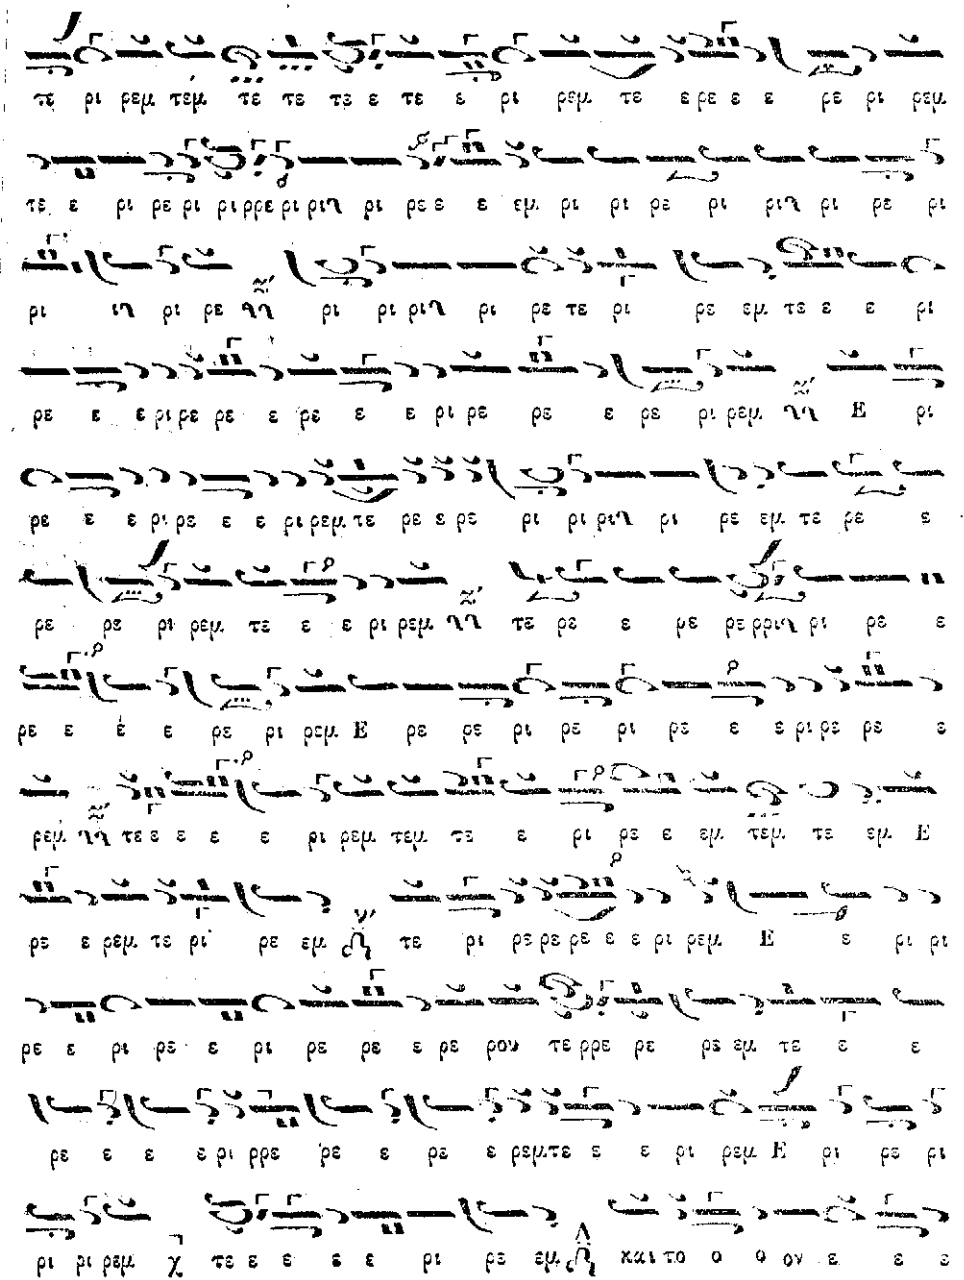 τε ρι ρεμ τεμ τε τε τε ε τε ε ρι ρεμ τε ε ρε ε ε ρε ρι ρεμ
τε ε ρι ρε ρι ρι ρρε ρι ριλ ρι ρε ε ε εμ ρι ρι ρε ρι ριλ ρι ρε ρι
ρι ιλ ρι ρε λλ ρι ρι ριλ ρι ρε τε ρι ρε εμ τε ε ε ρι
ρε ε ε ρι ρε ρε ε ρε ε ε ρι ρε ρε ε ρε ρι ρεμ λλ Ε ρι
ρε ε ε ρι ρε ε ε ρι ρεμ τε ρε ε ρε ρι ρι ριλ ρι ρε εμ τε ρε ε
ρε ρε ρι ρεμ τε ε ε ρι ρεμ λλ τε ρε ε ρε ρε ρριλ ρι ρε ε
ρε ε ε ε ρε ρι ρεμ Ε ρε ρε ρι ρε ρι ρε ε ε ρι ρε ρε ε
ρεμ λλ τε ε ε ε ε ρι ρεμ τεμ τε ε ρι ρε ε εμ τεμ τε εμ Ε
ρε ε ρεμ τε ρι ρε εμ τε ρι ρε ρε ρε ε ε ρι ρεμ Ε ε ρι ρι
ρε ε ρι ρε ε ρι ρε ρε ε ρε ρον τε ρρε ρε ρε εμ τε ε ε
ρε ε ε ε ρι ρρε ρε ε ρε ε ρεμ τε ε ε ρι ρεμ Ε ρι ρε ρι
ρι ρι ρεμ χ τε ε ε ε ε ρι ρε εμ και το ο ο ον ε ε ε